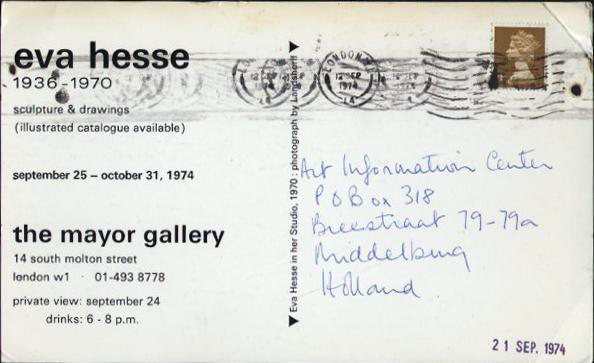 eva hesse
1936-1970
sculpture & drawings
(illustrated catalogue available)
september 25 – october 31, 1974
the mayor gallery
14 south molton street
london w1 · 01-493 8778
private view: september 24
drinks: 6 - 8 p.m.
▼ Eva Hesse in her Studio, 1970 : photograph by Landshoff ▼
LONDON
12 SEP
1974
Art Information Center
PO Box 318
Breestraat 79-79a
Middelburg
Holland
21 SEP. 1974